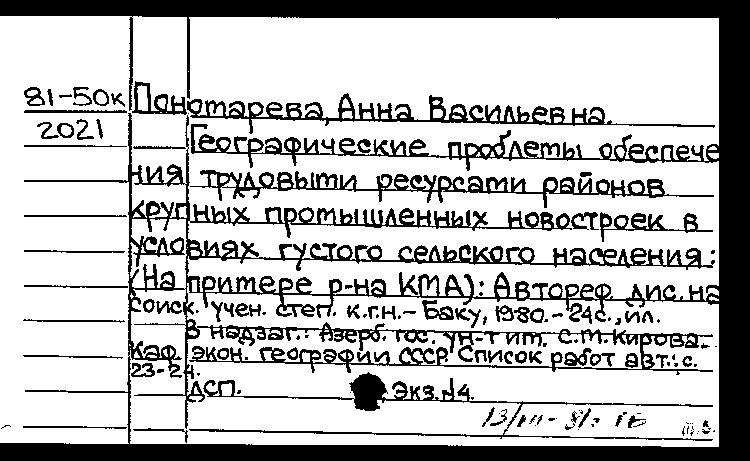 81-50к Пономарева, Анна Васильевна.
2021 Географические проблемы обеспече
ния трудовыми ресурсами районов
крупных промышленных новостроек в
условиях густого сельского населения:
(На примере р-на КМА): Автореф. дис. на
соиск. учен. степ. к.г.н.- Баку, 1980.- 24с., ил.
В надзаг.: Азерб. гос. ун-т им. С.М. Кирова.
Каф. экон. географии СССР. Список работ авт.: с.
23-24.
ДСП. Экз. №4.